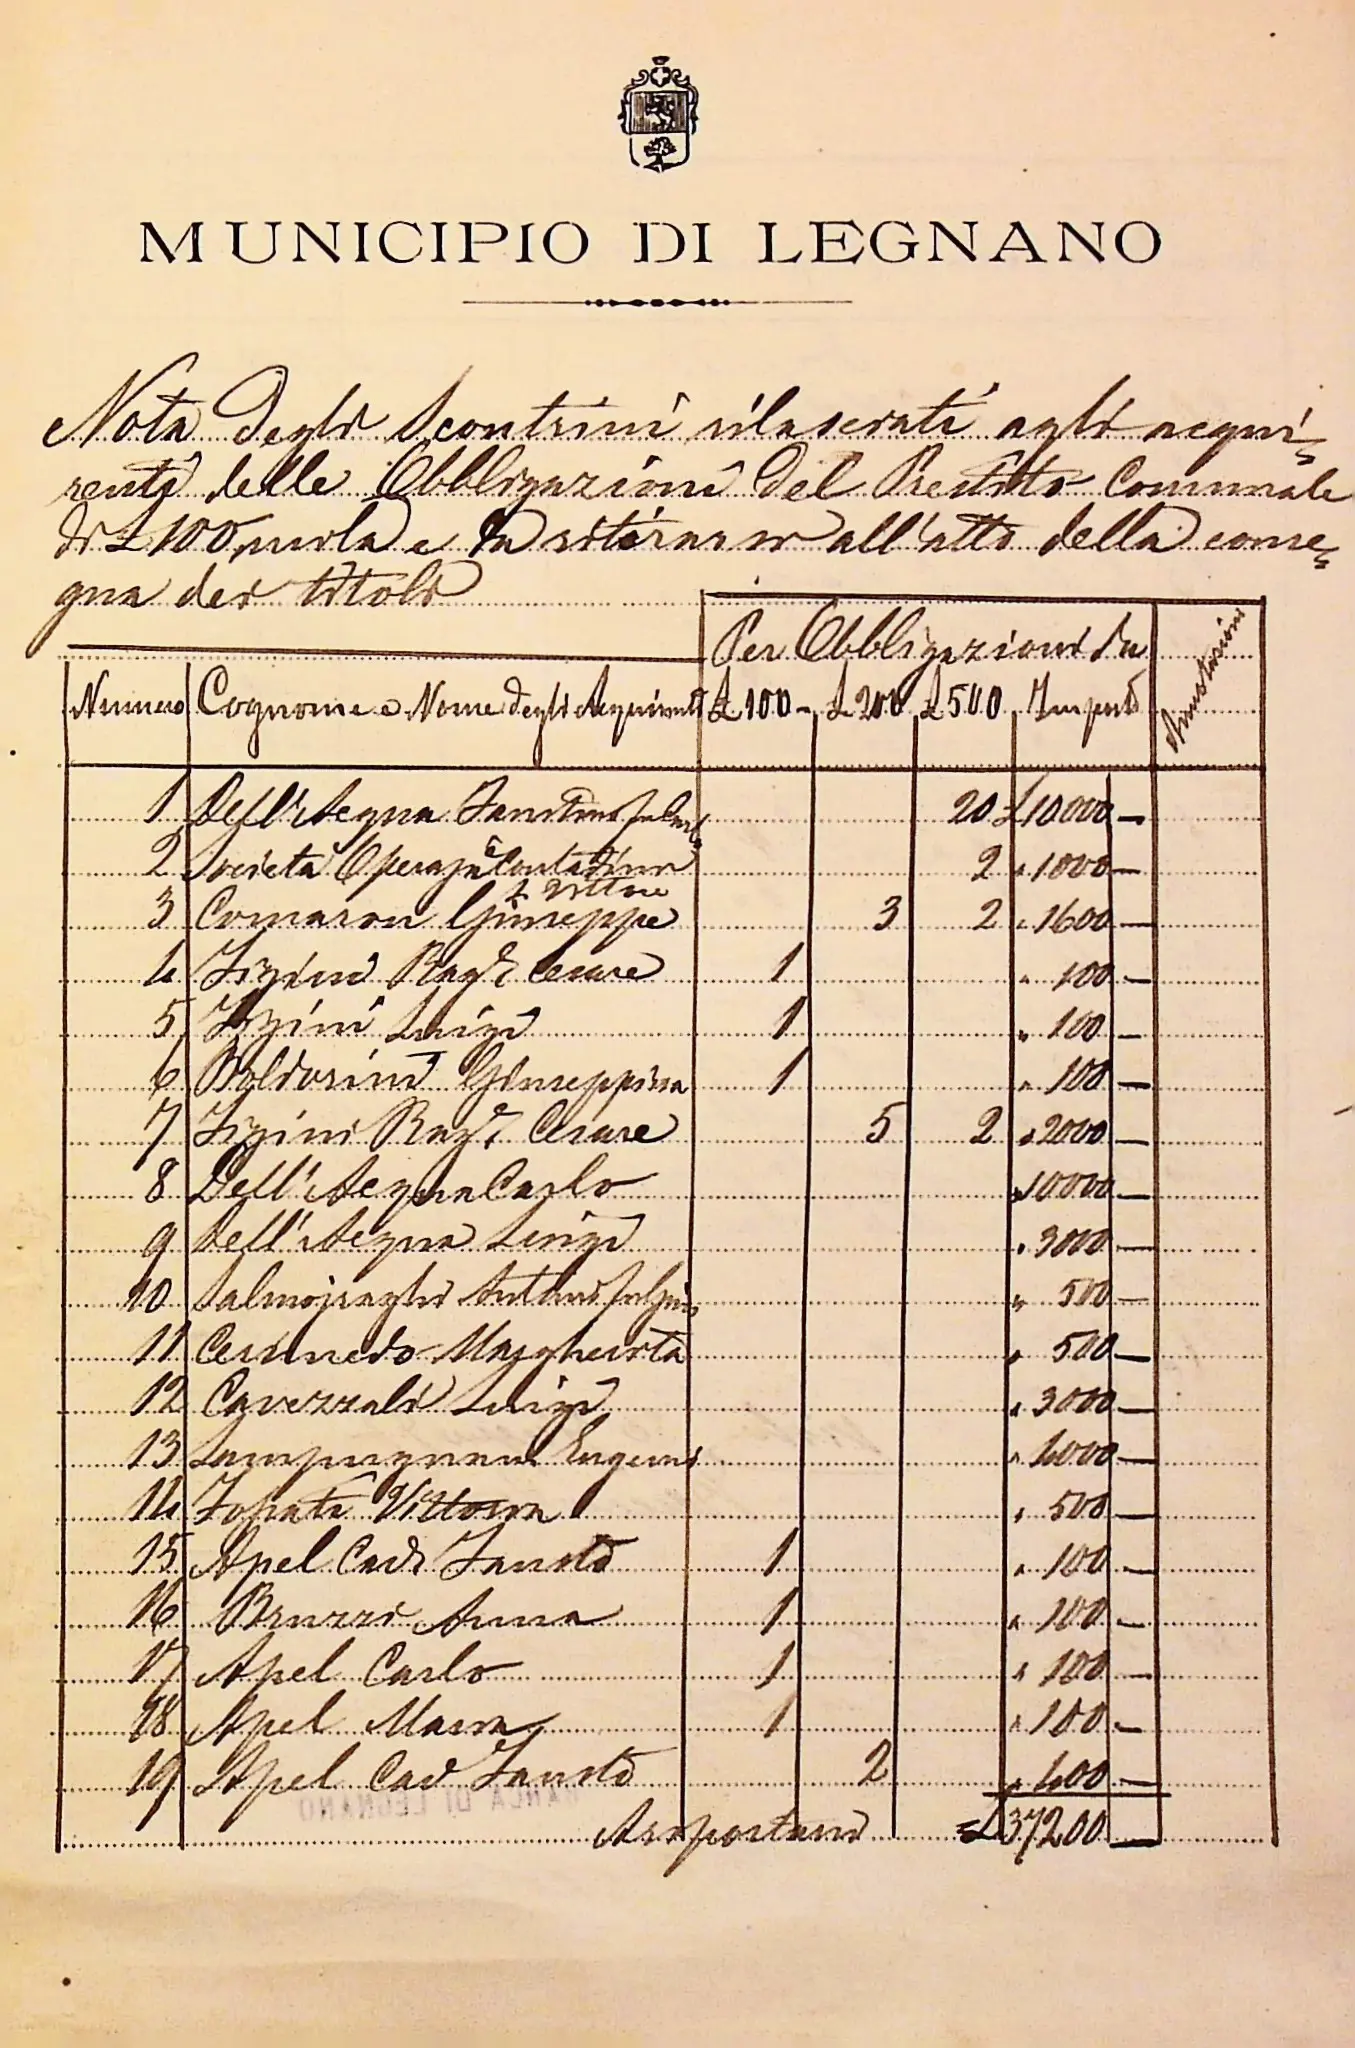 MUNICIPIO DI LEGNANO
Nota degli Scontrini rilasciati agli acqui=
renti delle Obbligazioni del Prestito Comunale
di £ 100 mila e da ritirarsi all'atto della conse=
gna dei titoli
Per Obbligazioni da
Numero Cognome e Nome degli Acquirenti £ 100 - £ 200 £ 500 Importo Annotazioni
1 Dell'Acqua Faustino fu Carlo 20 £ 10000 —
2 Società Operaja e Contadina 2 " 1000 —
3 Comaron Giuseppe & Vittore 3 2 " 1600 —
4 Figini Rag.e Cesare 1 " 100 —
5 Figini Luigi 1 " 100 —
6 Boldorini Giuseppina 1 " 100 —
7 Figini Rag.e Cesare 5 2 " 2000 —
8 Dell'Acqua Carlo " 10000 —
9 Dell'Acqua Luigi " 3000 —
10 Salmojraghi Antonio fu " 500 —
11 Margherita " 500 —
12 Cavezzali Luigi " 3000 —
13 Lampugnani Eugenio " 4000 —
14 Vittoria " 500 —
15 Apel Cav. Fausto 1 " 100 —
16 Bruzzi Anna 1 " 100 —
17 Apel Carlo 1 " 100 —
18 Apel Maria 1 " 100 —
19 Apel Cav Fausto 2 " 400 —
BANCA DI LEGNANO
A riportarsi £ 37200 —